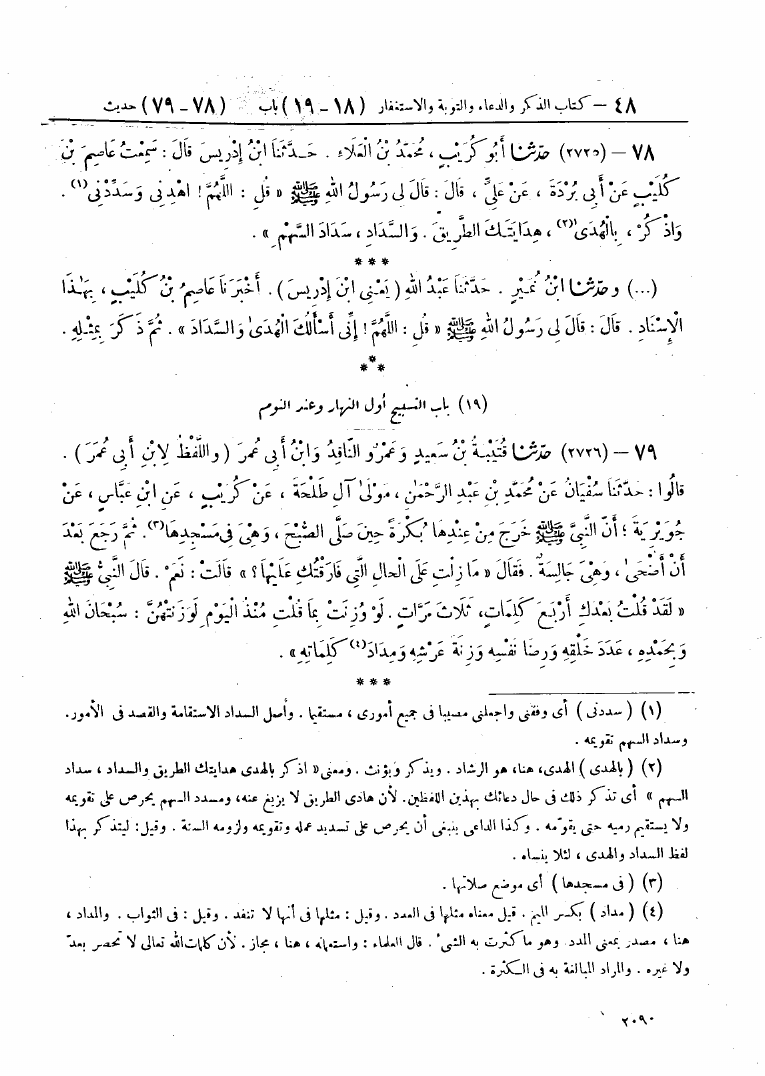 ٤٨ – كتاب الذكر والدعاء والتوبة والاستغفار (١٨ – ١٩) باب (٧٨ – ٧٩) حديث
٧٨ – (٢٧٢٥) حَدَّثَنَا أَبُو كُرَيْبٍ ، مُحَمَّدُ بْنُ الْعَلَاءِ . حَدَّثَنَا ابْنُ إِدْرِيسَ قَالَ : سَمِعْتُ عَاصِمَ بْنَ
كُلَيْبٍ عَنْ أَبِي بُرْدَةَ ، عَنْ عَلِيٍّ ، قَالَ : قَالَ لِي رَسُولُ اللهِ ﷺ « قُلِ : اللَّهُمَّ ! اهْدِنِي وَسَدِّدْنِي(١) .
وَاذْكُرْ ، بِالْهُدَىٰ(٢) ، هِدَايَتَكَ الطَّرِيقَ . وَالسَّدَادِ ، سَدَادَ السَّهْمِ » .
***
(...) وحَدَّثَنَا ابْنُ نُمَيْرٍ . حَدَّثَنَا عَبْدُ اللهِ ( يَعْنِي ابْنَ إِدْرِيسَ ) . أَخْبَرَنَا عَاصِمُ بْنُ كُلَيْبٍ ، بِهَٰذَا
الْإِسْنَادِ . قَالَ : قَالَ لِي رَسُولُ اللهِ ﷺ « قُلِ : اللَّهُمَّ ! إِنِّي أَسْأَلُكَ الْهُدَىٰ وَالسَّدَادَ » . ثُمَّ ذَكَرَ بِمِثْلِهِ .
***
(١٩) باب التسبيح أول النهار وعند النوم
٧٩ – (٢٧٢٦) حَدَّثَنَا قُتَيْبَةُ بْنُ سَعِيدٍ وَعَمْرٌو النَّاقِدُ وَابْنُ أَبِي عُمَرَ ( وَاللَّفْظُ لِابْنِ أَبِي عُمَرَ ) .
قَالُوا : حَدَّثَنَا سُفْيَانُ عَنْ مُحَمَّدِ بْنِ عَبْدِ الرَّحْمَٰنِ ، مَوْلَىٰ آلِ طَلْحَةَ ، عَنْ كُرَيْبٍ ، عَنِ ابْنِ عَبَّاسٍ ، عَنْ
جُوَيْرِيَةَ ؛ أَنَّ النَّبِيَّ ﷺ خَرَجَ مِنْ عِنْدِهَا بُكْرَةً حِينَ صَلَّى الصُّبْحَ ، وَهِيَ فِي مَسْجِدِهَا(٣) . ثُمَّ رَجَعَ بَعْدَ
أَنْ أَضْحَىٰ ، وَهِيَ جَالِسَةٌ . فَقَالَ « مَا زِلْتِ عَلَى الْحَالِ الَّتِي فَارَقْتُكِ عَلَيْهَا ؟ » قَالَتْ : نَعَمْ . قَالَ النَّبِيُّ ﷺ
« لَقَدْ قُلْتُ بَعْدَكِ أَرْبَعَ كَلِمَاتٍ ، ثَلَاثَ مَرَّاتٍ . لَوْ وُزِنَتْ بِمَا قُلْتِ مُنْذُ الْيَوْمِ لَوَزَنَتْهُنَّ : سُبْحَانَ اللهِ
وَبِحَمْدِهِ ، عَدَدَ خَلْقِهِ وَرِضَا نَفْسِهِ وَزِنَةَ عَرْشِهِ وَمِدَادَ(٤) كَلِمَاتِهِ » .
***
(١) ( سددنى ) أى وفقنى واجعلنى مصيبا فى جميع أمورى ، مستقيما . وأصل السداد الاستقامة والقصد فى الأمور .
وسداد السهم تقويمه .
(٢) ( بالهدى ) الهدى ، هنا ، هو الرشاد . ويذكر ويؤنث . ومعنى « اذكر بالهدى هدايتك الطريق والسداد ، سداد
السهم » أى تذكر ذلك فى حال دعائك بهذين اللفظين . لأن هادى الطريق لا يزيغ عنه ، ومسدد السهم يحرص على تقويمه
ولا يستقيم رميه حتى يقوّمه . وكذا الداعى ينبغى أن يحرص على تسديد عمله وتقويمه ولزومه السنة . وقيل : ليتذكر بهذا
لفظ السداد والهدى ، لئلا ينساه .
(٣) ( فى مسجدها ) أى موضع صلاتها .
(٤) ( مداد ) بكسر الميم . قيل معناه مثلها فى العدد . وقيل : مثلها فى أنها لا تنفد . وقيل : فى الثواب . والمداد ،
هنا ، مصدر بمعنى المدد وهو ما كثرت به الشىء . قال العلماء : واستعماله ، هنا ، مجاز . لأن كلمات الله تعالى لا تحصر بعدّ
ولا غيره . والمراد المبالغة به فى الكثرة .
٢٠٩٠